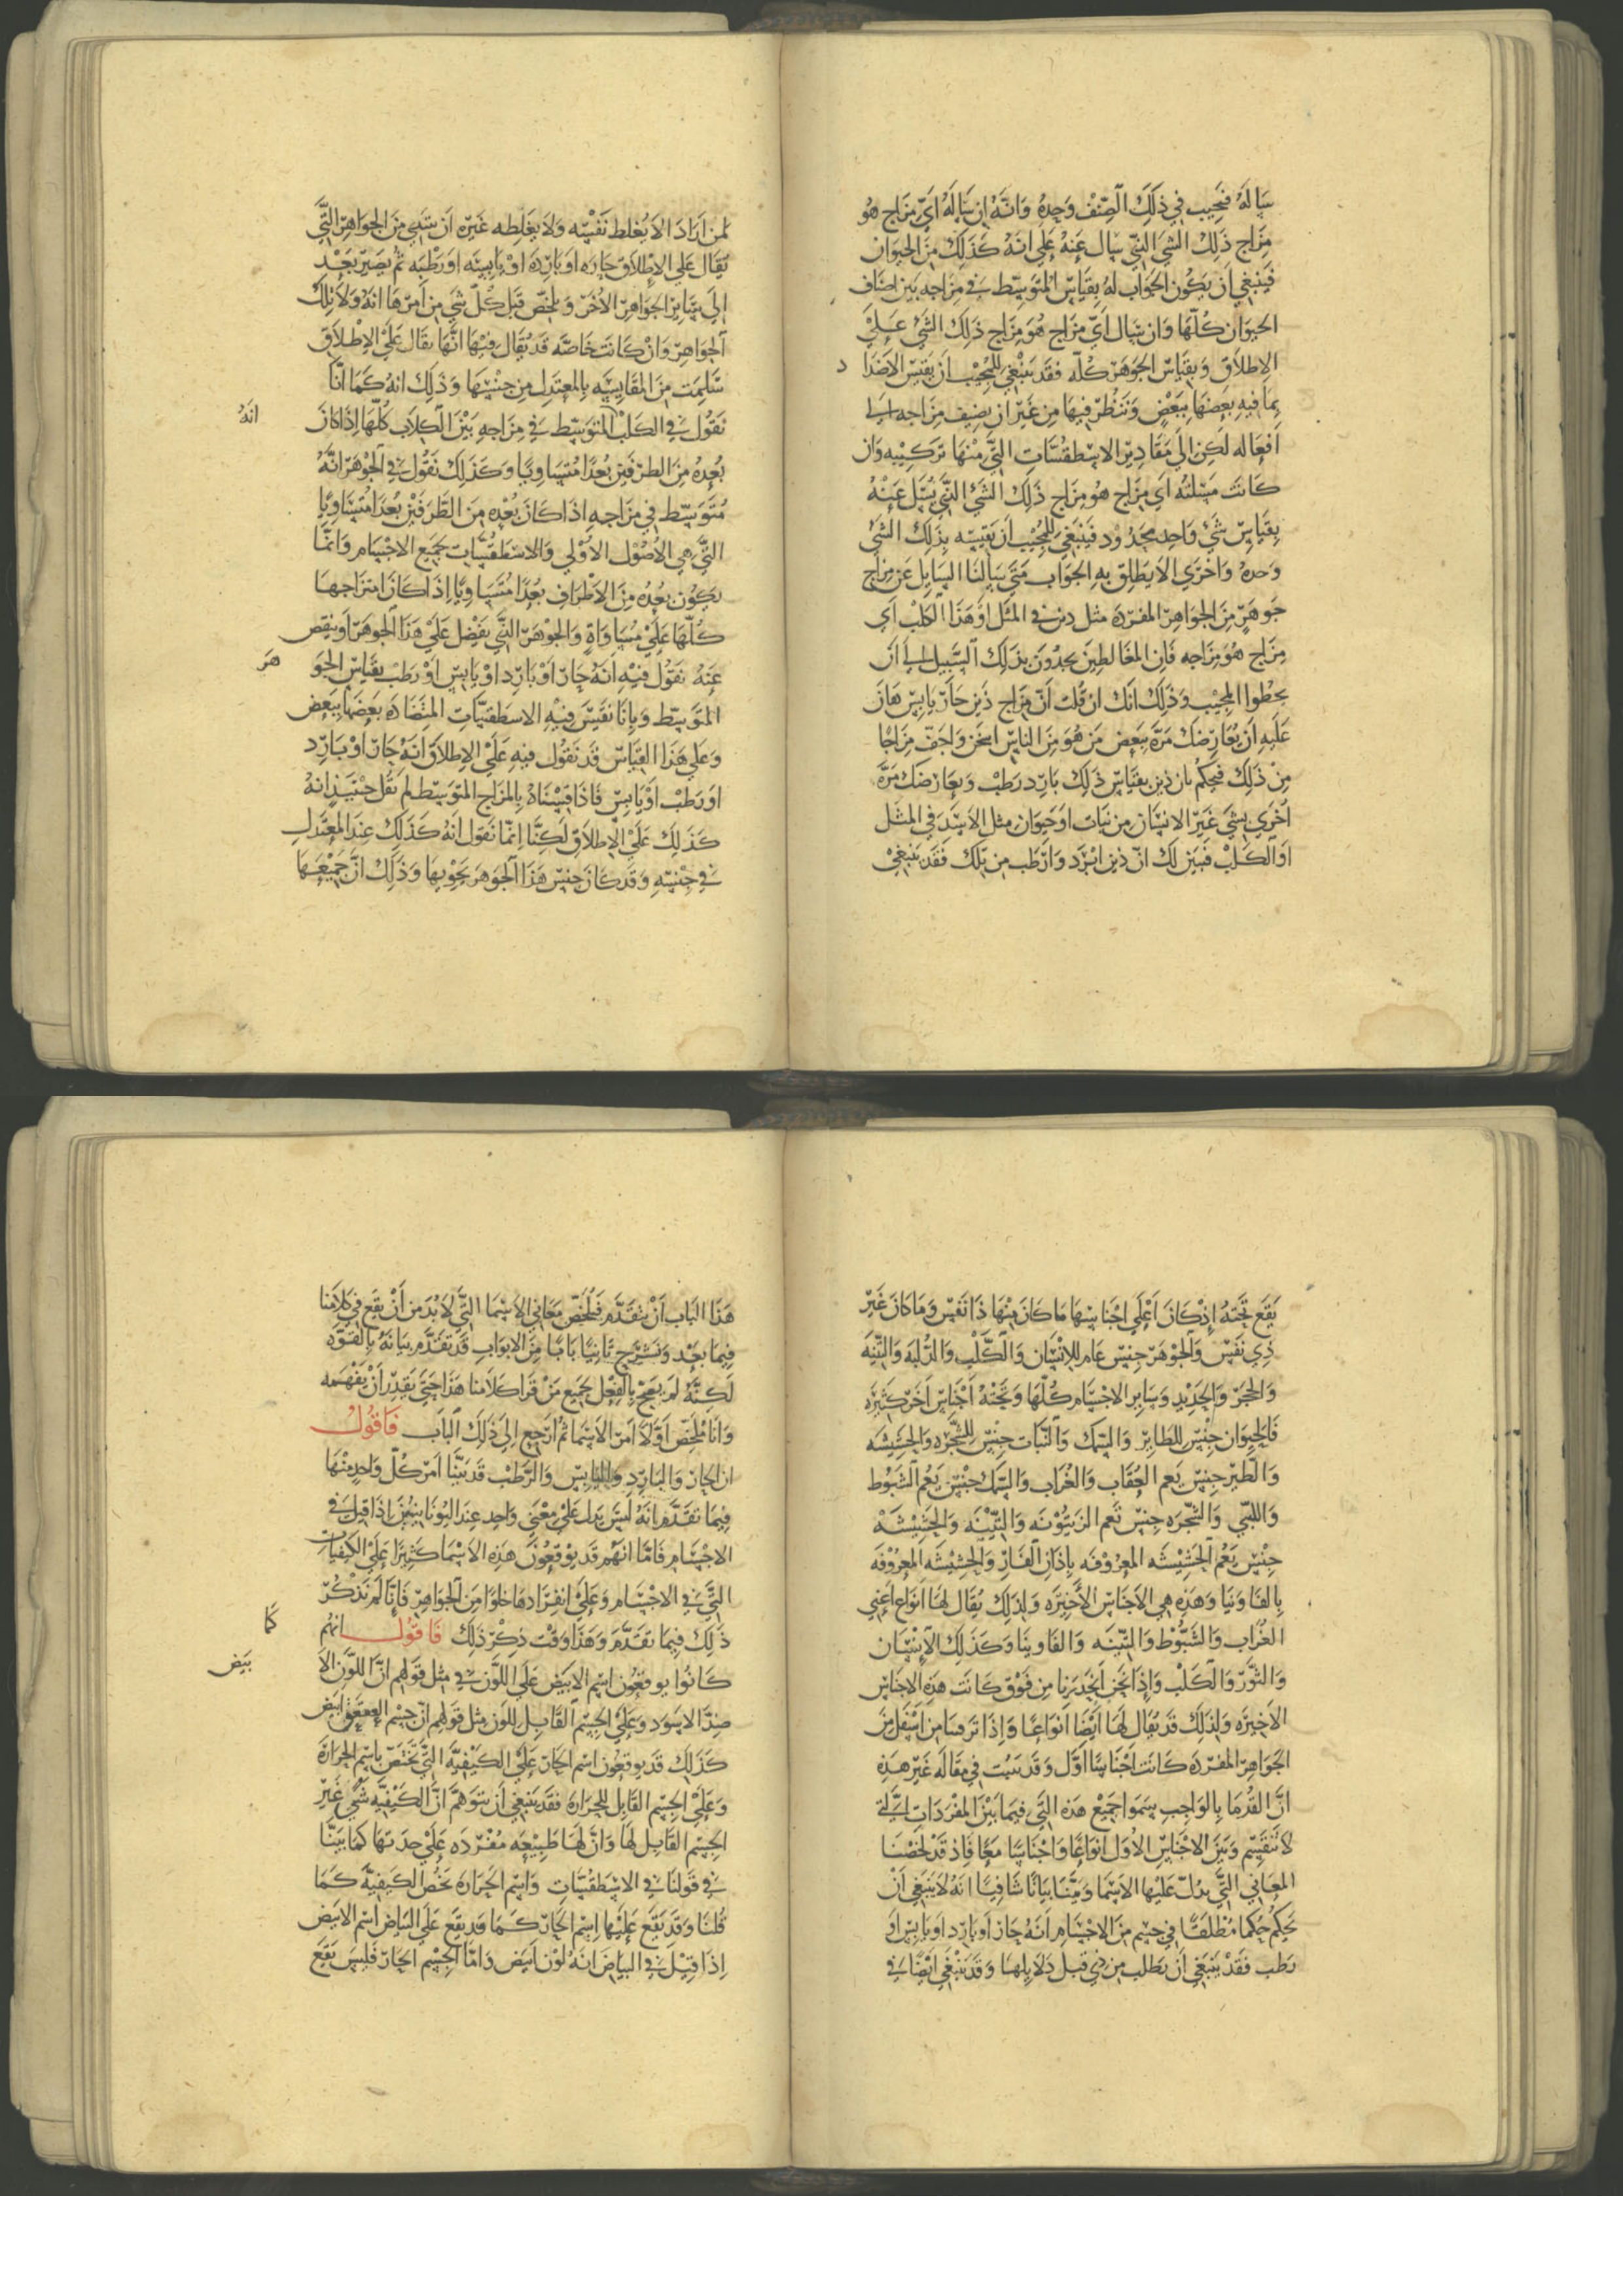 ساله فيجيب في ذلك الصنف وحده وانه ان ساله اي مزاج هو
مزاج ذلك الشي الذي سال عنه علي انه كذلك من الحيوان
فينبغي ان يكون الجواب له بقياس المتوسط في مزاجه بين اصناف
الحيوان كلها وان سال اي مزاج هو مزاج ذلك الشي علي
الاطلاق وبقياس الجوهر كله فقد ينبغي للمجيب ان يقيس الاضدا
د
بما فيه بعضها ببعض وننظر فيها من غير ان يضيف مزاجه الي
افعاله لكن الي مقادير الاسطقسات التي منها تركيبه وان
كانت مسئلته اي مزاج هو مزاج ذلك الشي الذي يسئل عنه
بقياس شي واحد محدود فينبغي للمجيب ان يقيسه بذلك الشي
وحده واخري الا يطلق به الجواب متي سالنا السايل عن مزاج
جوهر من الجواهر المفردة مثل دين في المثل او هذا الكلب اي
مزاج هو مزاجه فان المغالطين يجدون بذلك السبيل الي ان
يخطوا المجيب وذلك انك ان قلت ان مزاج ذين حار يابس هان
عليه ان يعارضك مرة ببعض من هو من الناس اسخن واجف مزاجا
من ذلك فيحكم بان ذين بقياس ذلك بارد رطب ويعارضك مرة
اخري بشي غير الانسان من نبات او حيوان مثل الاسد في المثل
او الكلب فيبين لك ان ذين ابرد وارطب من تلك فقد ينبغي
لمن اراد الا يغلط نفسه ولا يغلطه غيره ان يبتدي من الجواهر التي
يقال علي الاطلاق حاره او بارده او يابسه او رطبه ثم يصير بعد
الي ساير الجواهر الاخر ويلخص قبل كل شي من امرها انه ولا تلك
الجواهر وان كانت خاصه قد يقال فيها انها تقال علي الاطلاق
سلمت من المقايسه بالمعتدل من جنسها وذلك انه كما انا
نقول في الكلب المتوسط في مزاجه بين الكلاب كلها اذا كان
انه
بعده من الطرفين بعدا متساويا وكذلك نقول في الجوهر انه
متوسط في مزاجه اذا كان بعده من الطرفين بعدا متساويا
التي هي الاصول الاولي والاسطقسات لجميع الاجسام وانما
يكون بعده من الاطراف بعدا متساويا اذا كان امتزاجها
كلها علي مساواة والجوهر الذي يفضل علي هذا الجوهر او ينقص
عنه نقول فيه انه حار او بارد او يابس او رطب بقياس الجو
هر
المتوسط وبانا نقيس فيه الاسطقسات المتضاده بعضها ببعض
وعلي هذا القياس قد نقول فيه علي الاطلاق انه حار او بارد
او رطب او يابس فاذا قسناه بالمزاج المتوسط لم نقل حينيذ انه
كذلك علي الاطلاق لكنا انما نقول انه كذلك عند المعتدل
في جنسه وقد كان جنس هذا الجوهر يحويها وذلك ان جميعها
يقع تحته اذ كان اعلي اجناسها ما كان منها ذا نفس وما كان غير
ذي نفس والجوهر جنس عام للانسان والكلب والدلبه والتينه
والحجر والحديد وساير الاجسام كلها وتحته اجناس اخر كثيره
فالحيوان جنس للطاير والسمك والنبات جنس للشجره والحشيشه
والطير جنس يعم العقاب والغراب والسمك جنس يعم الشبوط
واللبي والشجره جنس تعم الزيتونه والتينه والحشيشه
جنس يعم الحشيشه المعروفه باذان الفار والحشيشه المعروفه
بالفاونيا وهذه هي الاجناس الاخيره ولذلك يقال لها انواع اعني
الغراب والشبوط والتينه والفاوينا وكذلك الانسان
والثور والكلب واذا نحن انحدرنا من فوق كانت هذه الاجناس
الاخيره ولذلك قد يقال لها ايضا انواعا واذا ترقينا من اسفل من
الجواهر المفرده كانت اجناسا اول وقد بينت في مقاله غير هذه
ان القدما بالواجب سموا جميع هذه التي فيما بين المفردات التي
لا تنقسم وبين الاجناس الاول انواعا واجناسا معا فاذ قد لخصنا
المعاني التي يدل عليها الاسما وبينا بيانا شافيا انه لا ينبغي ان
نحكم حكما مطلقا في جسم من الاجسام انه حار او بارد او يابس او
رطب فقد ينبغي ان نطلب من ذي قبل دلايلها وقد ينبغي ايضا في
هذا الباب ان نتقدم فنلخص معاني الاسما التي لا بد من ان يقع في كلامنا
فيما بعد ونشرح ثانيا بابا من الابواب قد تقدم بيانه بالقوه
لكنه لم يصح بالفعل لجميع من قرا كلامنا هذا حتي يقدر ان يفهمه
وانا ملخص اولا امر الاسما ثم ارجع الي ذلك الباب فاقول
ان الحار والبارد واليابس والرطب قد بينا امر كل واحد منها
فيما تقدم انه ليس يدل علي معني واحد عند اليونانيين اذا قيل في
الاجسام فاما انهم قد يوقعون هذه الاسما كثيرا علي الكيفيات
التي في الاجسام وعلي انفرادها خلوا من الجواهر فانا لم نذكر
ذلك فيما تقدم وهذا وقت ذكر ذلك فاقول انهم
كما
كانوا يوقعون اسم الابيض علي اللون في مثل قولهم ان اللون الا
بيض
ضد الاسود وعلي الجسم القابل للون مثل قولهم ان جسم العقعق ابيض
كذلك قد يوقعون اسم الحار علي الكيفيه التي تختص باسم الحرارة
وعلي الجسم القابل للحراره فقد ينبغي ان يتوهم ان الكيفيه شي غير
الجسم القابل لها وان لها طبيعه مفرده علي حدتها كما بينا
في قولنا في الاسطقسات واسم الحراره يخص الكيفيه كما
قلنا وقد يقع عليها اسم الحار كما قد يقع علي البياض اسم الابيض
اذا قيل في البياض انه لون ابيض واما الجسم الحار فليس يقع